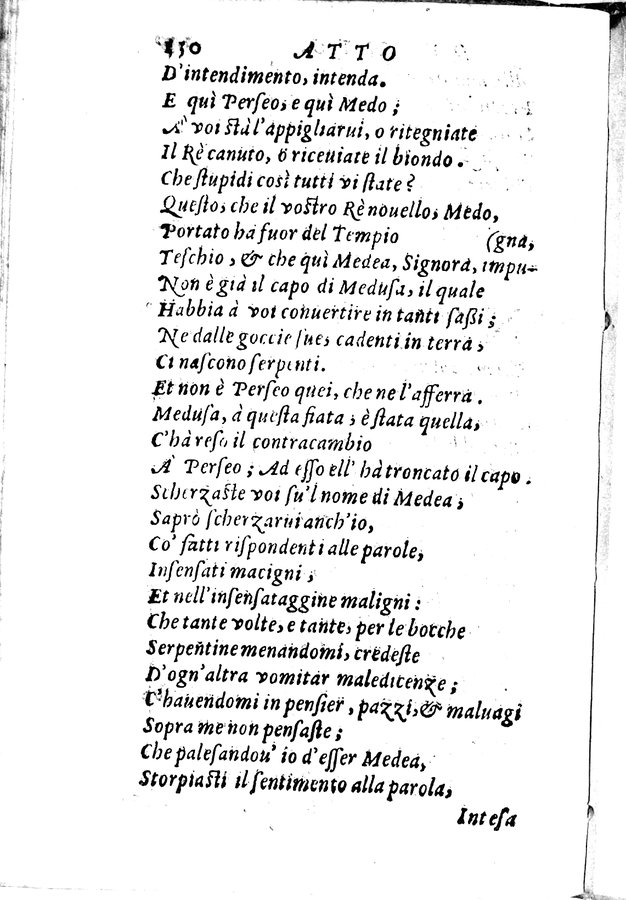 130 ATTO
D'intendimento, intenda.
E quì Perſeo, e quì Medo;
A' voi ſtà l'appigliarui, o ritegniate
Il Rè canuto, ò riceuiate il biondo.
Che ſtupidi così tutti vi ſtate?
Queſto, che il voſtro Rè nouello, Medo,
Portato hà fuor del Tempio (gna,
Teſchio, & che quì Medea, Signora, impu-
Non è già il capo di Meduſa, il quale
Habbia à voi conuertire in tanti ſaſſi;
Ne dalle goccie ſue, cadenti in terra,
Ci naſcono ſerpenti.
Et non è Perſeo quei, che ne l'afferra.
Meduſa, à queſta fiata, è ſtata quella,
C'hà reſo il contracambio
A Perſeo; Ad eſſo ell' hà troncato il capo.
Scherzaſte voi ſu'l nome di Medea,
Saprò ſcherzarui anch'io,
Co' fatti riſpondenti alle parole,
Inſenſati macigni,
Et nell'inſenſataggine maligni:
Che tante volte, e tante, per le bocche
Serpentine menandomi, credeſte
D'ogn'altra vomitar maledicenze;
C'hauendomi in penſier, pazzi, & maluagi
Sopra me non penſaſte;
Che paleſandou' io d'eſſer Medea,
Storpiaſti il ſentimento alla parola,
Inteſa